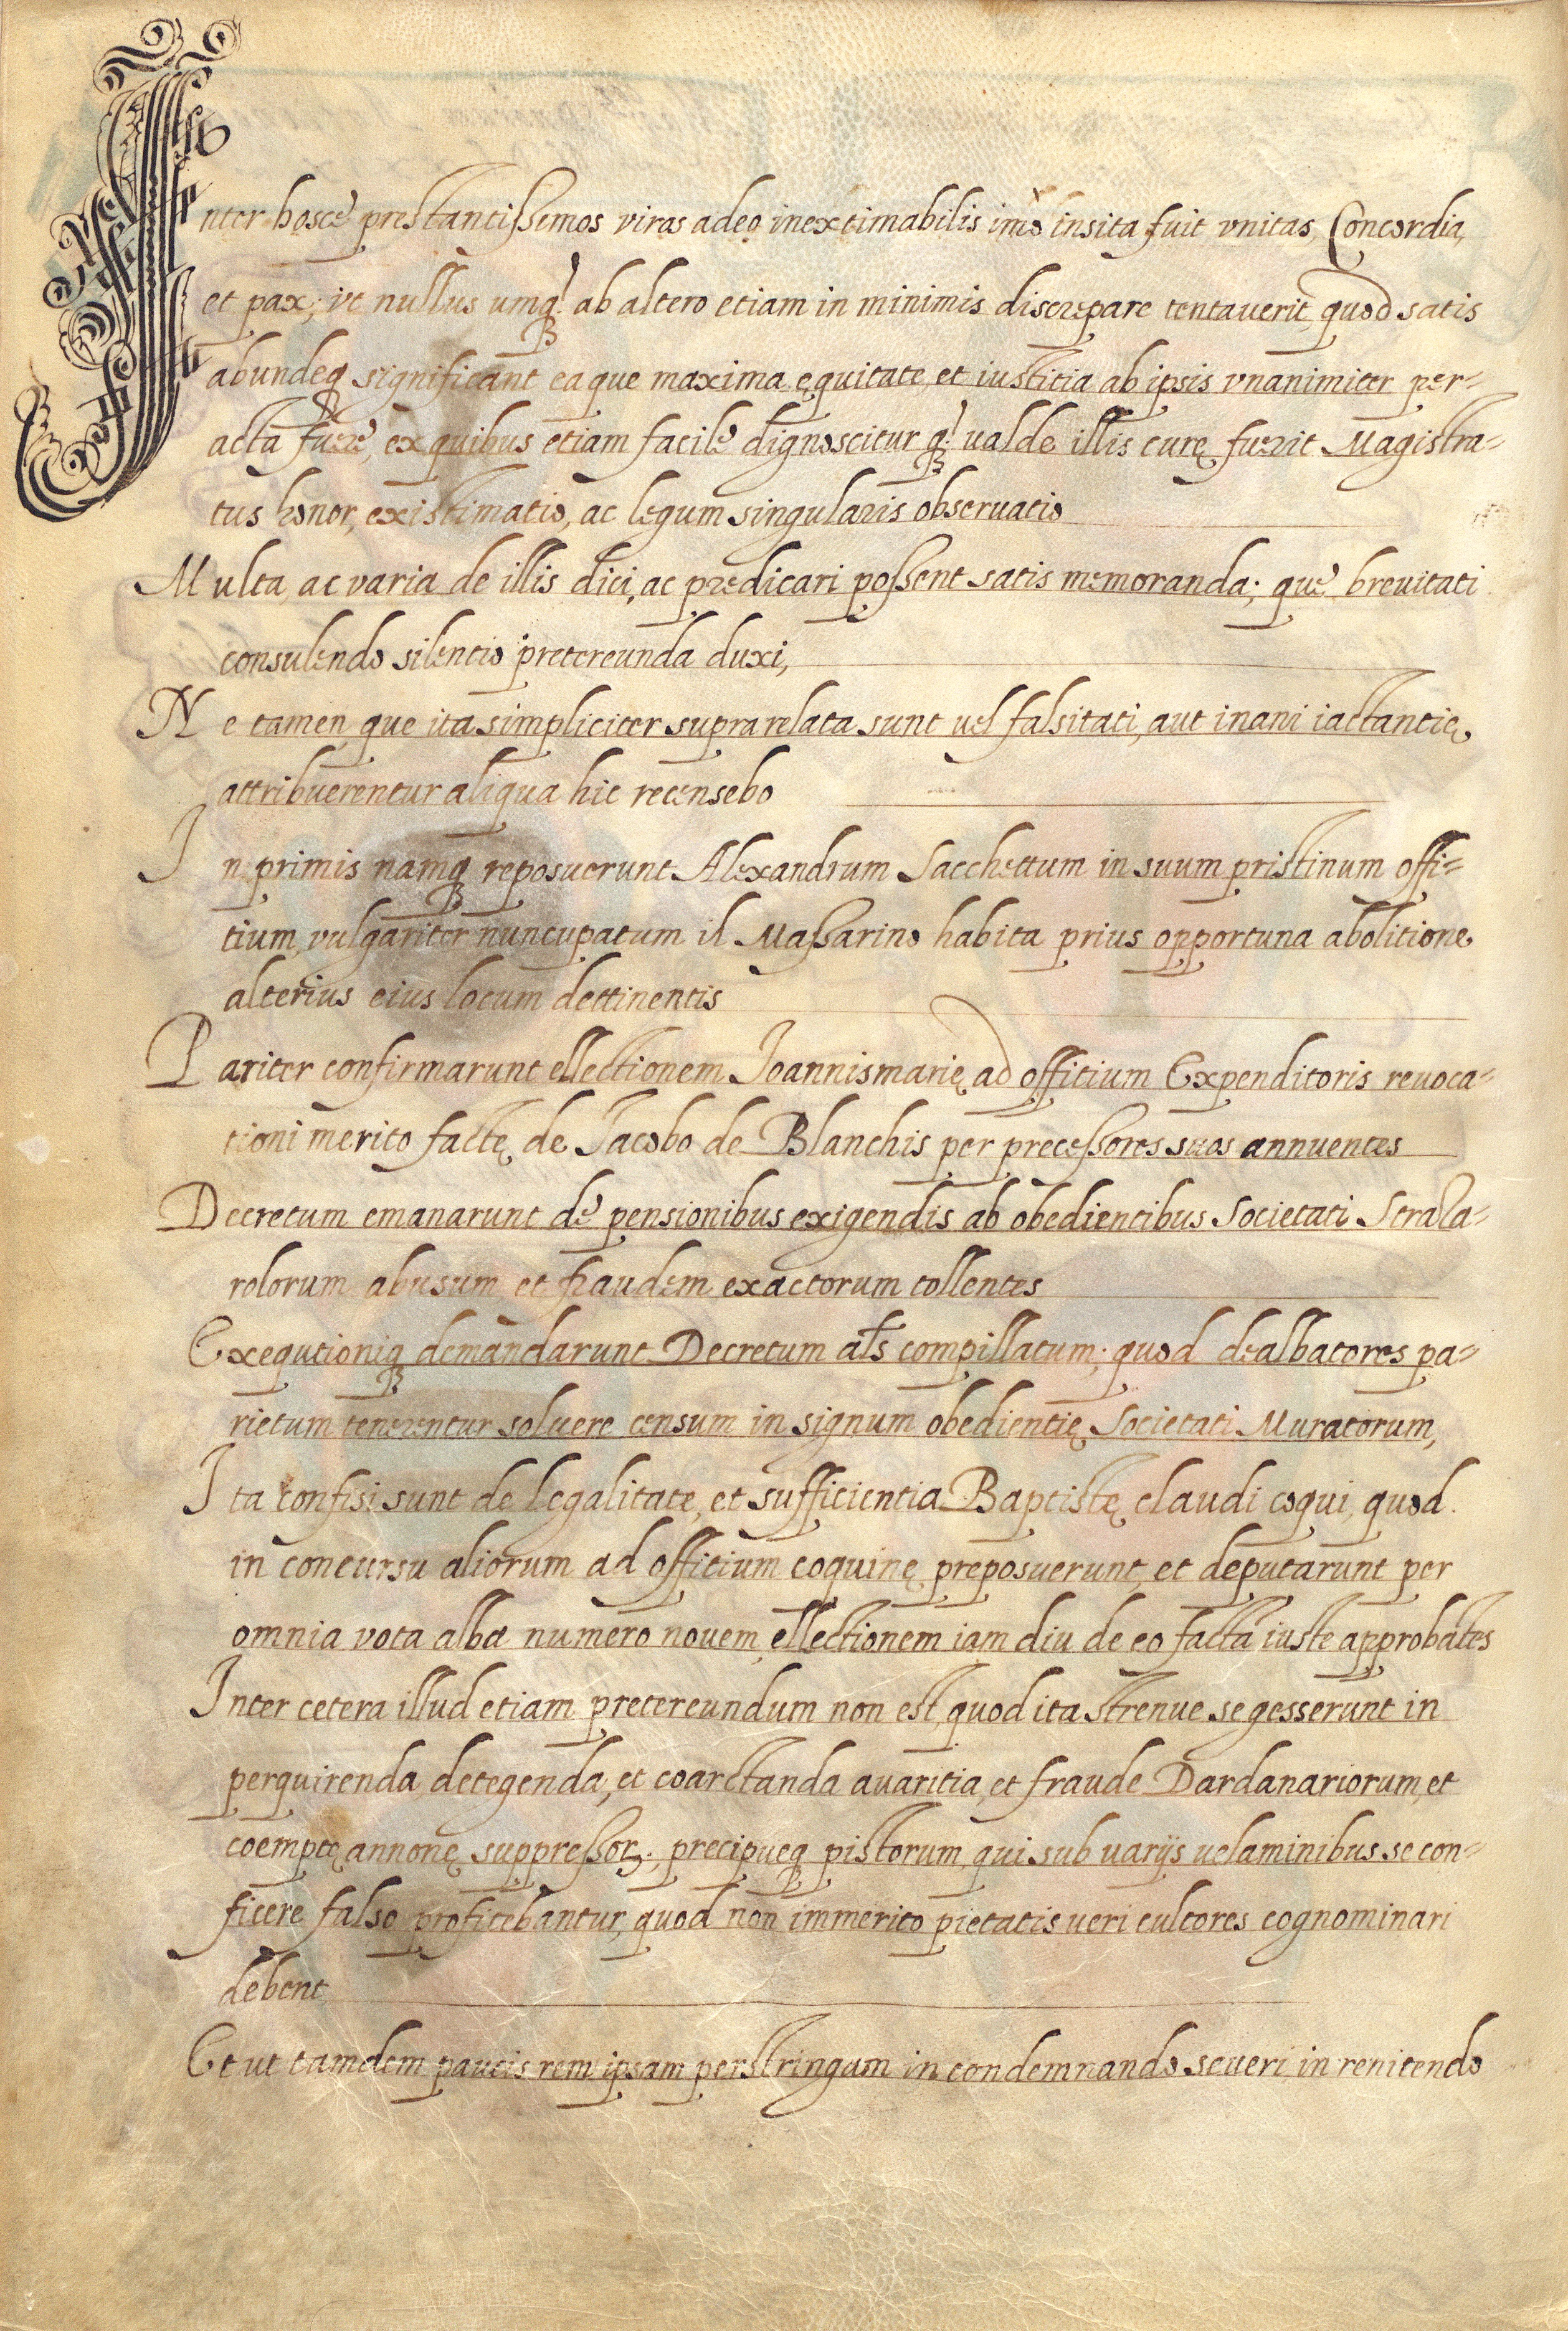 Inter hosce prestantissemos viros adeo inextimabilis imò insita fuit vnitas, Concordia,
et pax; vt nullus umq̃ ab altero etiam in minimis discrepare tentauerit, quod satis
abundeq; significant ea que maxima ęquitate, et iustitia ab ipsis vnanimiter per=
acta fuere, ex quibus etiam facile dignoscitur q̃ ualde illis curę fuerit Magistra=
tus honor, existimatio, ac legum singularis obseruatio
Multa, ac varia de illis dici, ac predicari possent satis memoranda; que breuitati
consulendo silentio pretereunda duxi,
Ne tamen que ita simpliciter supra relata sunt uel falsitati, aut inani iactantię
attribuerentur aliqua hic recensebo
In primis namq; reposuerunt Alexandrum Sacchettum in suum pristinum offi=
tium, vulgariter nuncupatum il Massarino habita prius opportuna abolitione
alterius eius locum dettinentis
Pariter confirmarunt ellectionem Ioannismarię ad offitium Expenditoris reuoca=
tioni merito factę de Iacobo de Blanchis per precessores suos annuentes
Decretum emanarunt de pensionibus exigendis ab obedientibus Societati Strala=
rolorum abusum et fraudem exactorum tollentes
Exequtioniq; demandarunt Decretum al̃s compillatum; quod dealbatores pa=
rietum tenerentur soluere censum in signum obedientię Societati Muratorum,
Ita confisi sunt de legalitate, et sufficientia Baptistę claudi coqui, quod
in concursu aliorum ad offitium coquinę preposuerunt, et deputarunt per
omnia vota alba numero nouem ellectionem iam diu de eo factã iuste approbãtes
Inter cetera illud etiam pretereundum non est, quod ita strenue se gesserunt in
perquirenda, detegenda, et coarctanda auaritia, et fraude Dardanariorum, et
coemptę annonę suppressoꝝ; precipueq; pistorum, qui sub uarijs uelaminibus se con=
ficere falso profitebantur, quod non immerito pietatis ueri cultores cognominari
debent
Et ut tamdem paucis rem ipsam perstringam in condemnando seueri, in renitendo